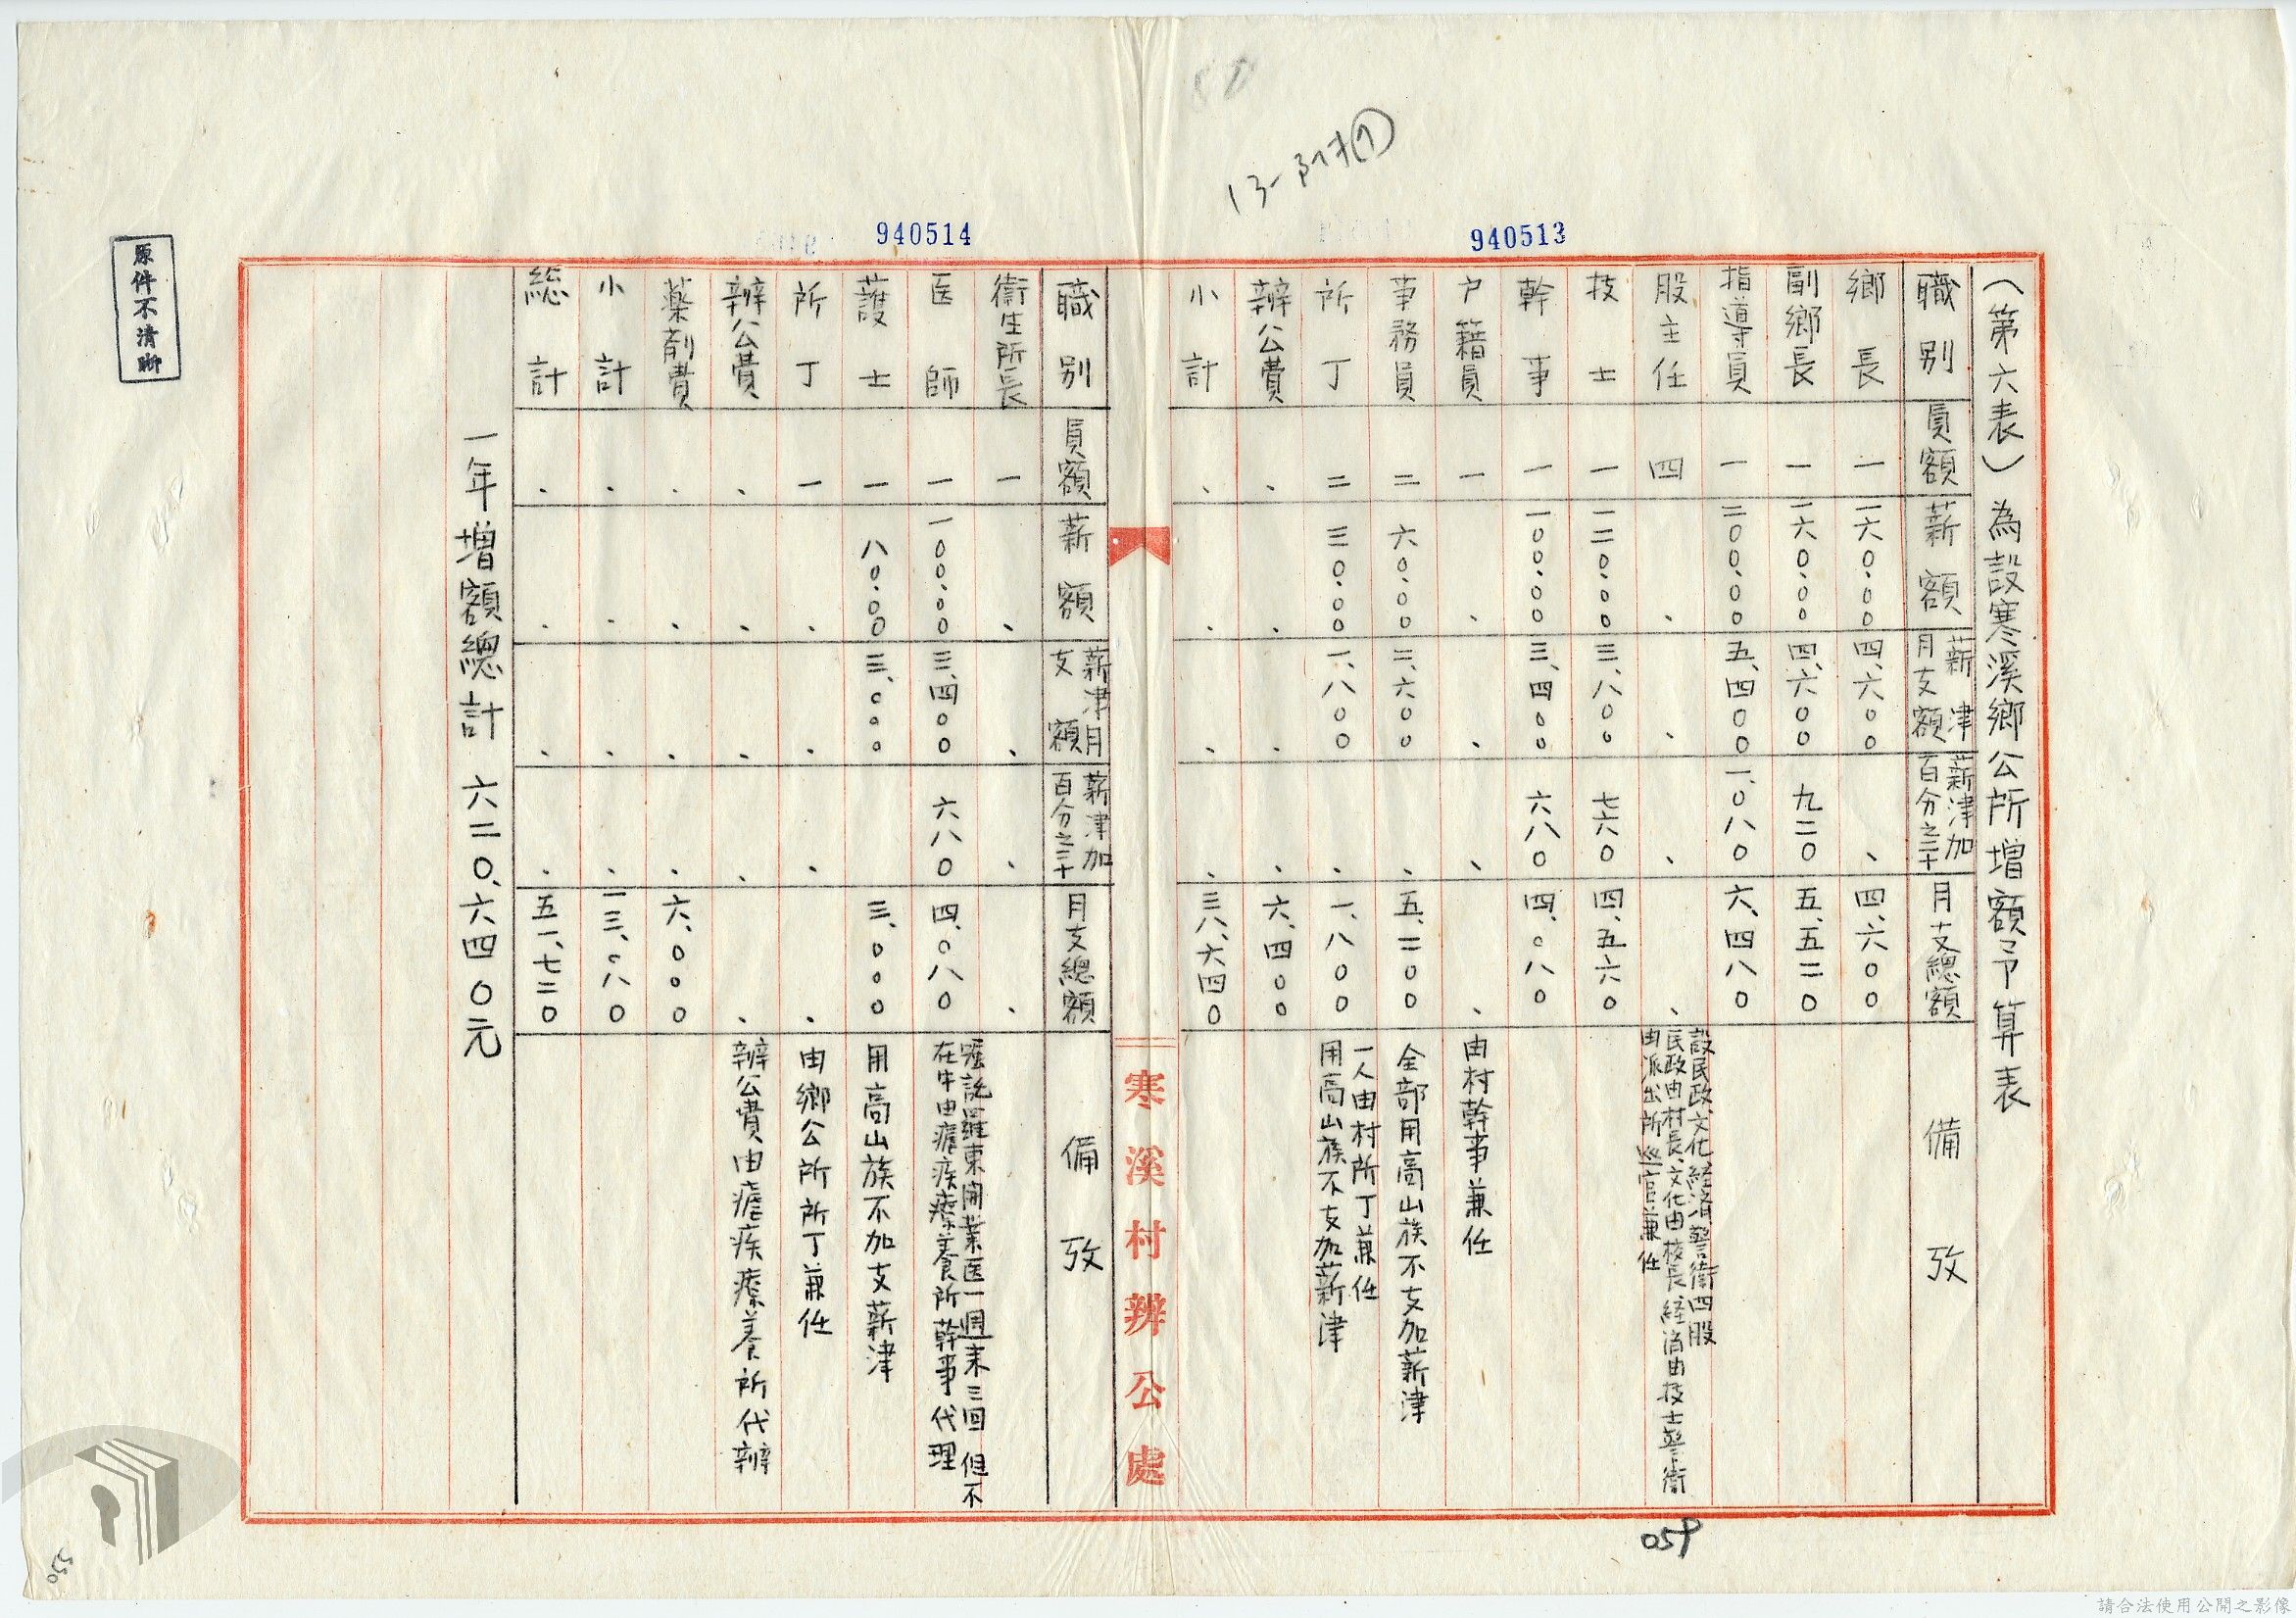 50
13-附(1)
940513
940514
原件不清晰
（第六表）為設寒溪鄉公所増額予算表
職別 員額 薪額 薪津月支額 薪津加百分之二十 月支總額 備攷
鄉長 一 一六〇.〇〇 四、六〇〇 、 四、六〇〇
副鄉長 一 一六〇.〇〇 四、六〇〇 九二〇 五、五二〇
指導員 一 二〇〇.〇〇 五、四〇〇 一、〇八〇 六、四八〇
股主任 四 、 、 、 、 設民政、文化、経済、警衛四股
民政由村長、文化由校長、経済由技士、警衛
由派出所巡官兼任
技士 一 一二〇.〇〇 三、八〇〇 七六〇 四、五六〇
幹事 一 一〇〇.〇〇 三、四〇〇 六八〇 四、〇八〇
户籍員 一 、 、 、 、 由村幹事兼任
事務員 二 六〇.〇〇 二、六〇〇 、 五、二〇〇 全部用高山族不支加薪津
所丁 二 三〇.〇〇 一、八〇〇 、 一、八〇〇 一人由村所丁兼任
用高山族不支加薪津
辦公費 、 、 、 、 六、四〇〇
小計 、 、 、 、 三八、六四〇
寒溪村辦公處
職別 員額 薪額 薪津月支額 薪津加百分之二十 月支總額 備攷
衛生所長 一 、 、 、 、
医師 一 一〇〇.〇〇 三、四〇〇 六八〇 四、〇八〇 嘱託羅東開業医一週末三回 但不
在中由瘧疾療養所幹事代理
護士 一 八〇.〇〇 三、〇〇〇 三、〇〇〇 用高山族不加支薪津
所丁 一 、 、 、 、 由鄉公所所丁兼任
辦公費 、 、 、 、 、 辦公費由瘧疾療養所代辦
薬剤費 、 、 、 、 六、〇〇〇
小計 、 、 、 、 一三、〇八〇
総計 、 、 、 、 五一、七二〇
一年増額總計 六二〇、六四〇元
059
請合法使用公開之影像